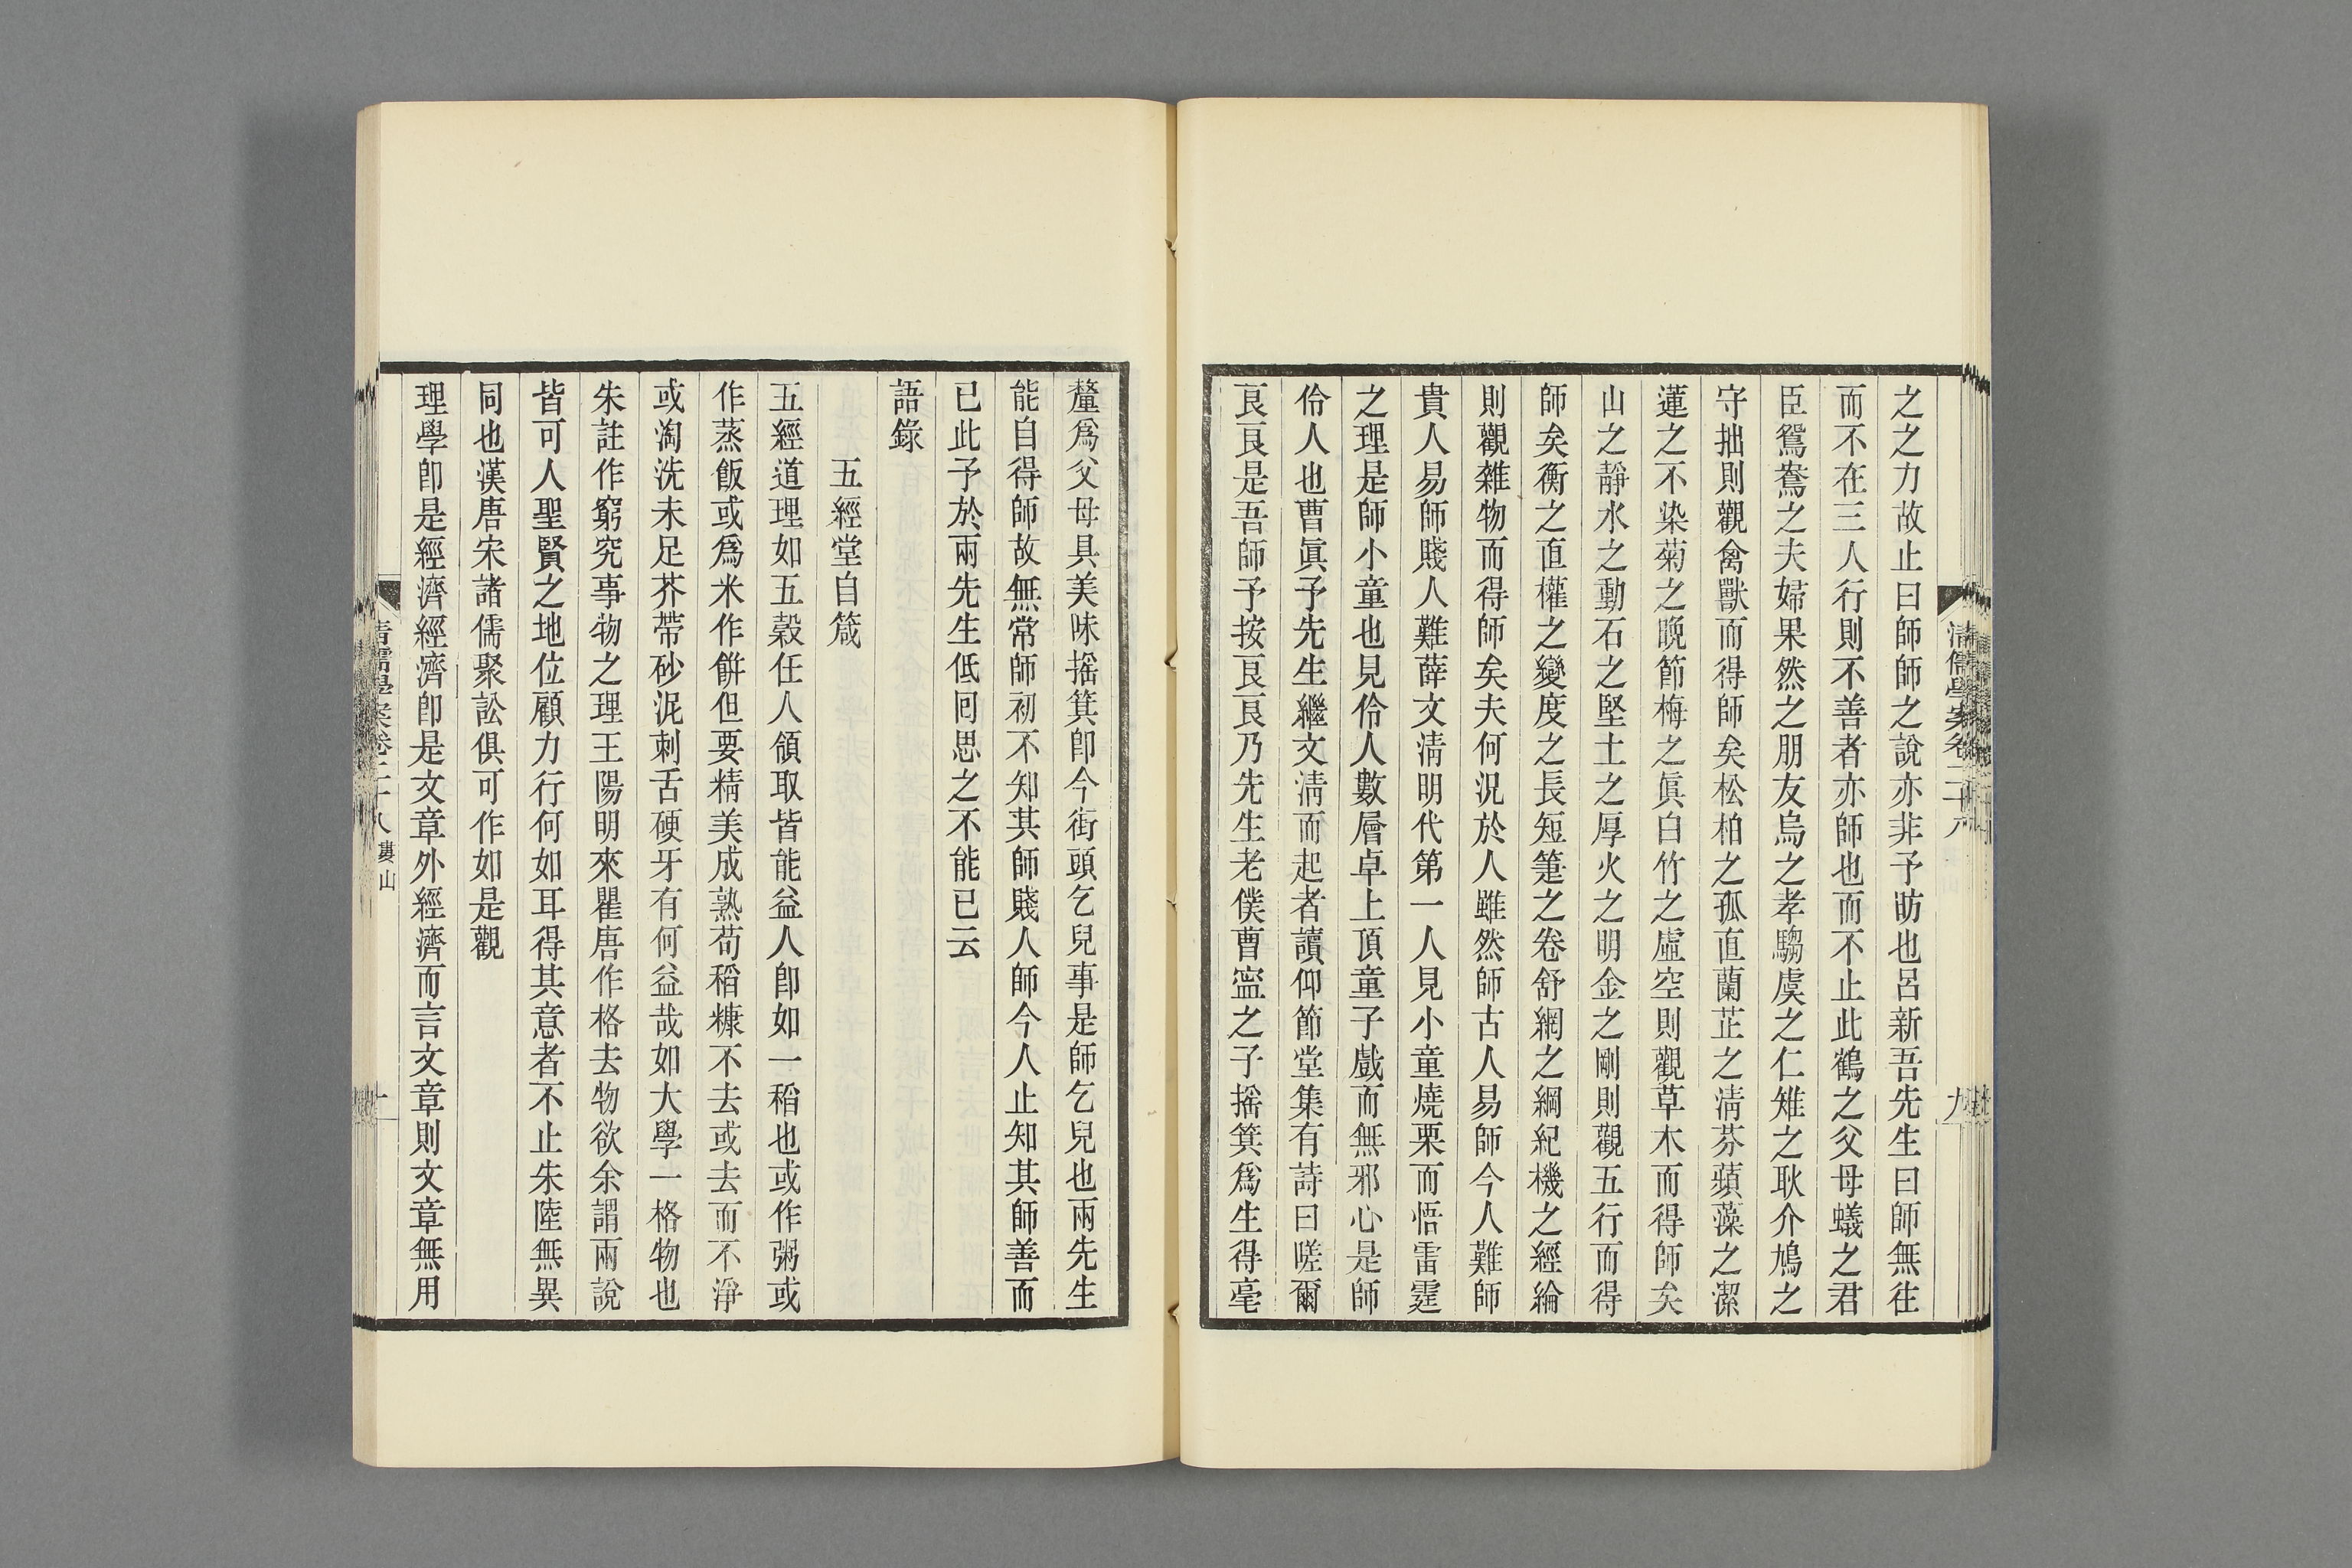 之之力故止曰師師之說亦非予昉也呂新吾先生曰師無往
而不在三人行則不善者亦師也而不止此鶴之父母蟻之君
臣鴛鴦之夫婦果然之朋友烏之孝騶虞之仁雉之耿介鳩之
守拙則觀禽獸而得師矣松柏之孤直蘭芷之淸芬蘋藻之潔
蓮之不染菊之晚節梅之眞白竹之虛空則觀草木而得師矣
山之靜水之動石之堅土之厚火之明金之剛則觀五行而得
師矣衡之直權之變度之長短箑之卷舒網之綱紀機之經綸
則觀雜物而得師矣夫何況於人雖然師古人易師今人難師
貴人易師賤人難薛文淸明代第一人見小童燒栗而悟雷霆
之理是師小童也見伶人數層卓上頂童子戲而無邪心是師
伶人也曹眞予先生繼文淸而起者讀仰節堂集有詩曰嗟爾
艮艮是吾師予按艮艮乃先生老僕曹寍之子搖箕爲生得毫
釐爲父母具美味搖箕卽今街頭乞兒事是師乞兒也兩先生
能自得師故無常師初不知其師賤人師今人止知其師善而
已此予於兩先生低囘思之不能已已云
語錄
五經堂自箴
五經道理如五穀任人領取皆能益人卽如一稻也或作粥或
作蒸飯或爲米作餠但要精美成熟苟稻糠不去或去而不淨
或淘洗未足芥帶砂泥刺舌硬牙有何益哉如大學一格物也
朱註作窮究事物之理王陽明來瞿唐作格去物欲余謂兩說
皆可人聖賢之地位顧力行何如耳得其意者不止朱陸無異
同也漢唐宋諸儒聚訟俱可作如是觀
理學卽是經濟經濟卽是文章外經濟而言文章則文章無用
清儒學案卷二十八
九
清儒學案卷二十八 婁山
十